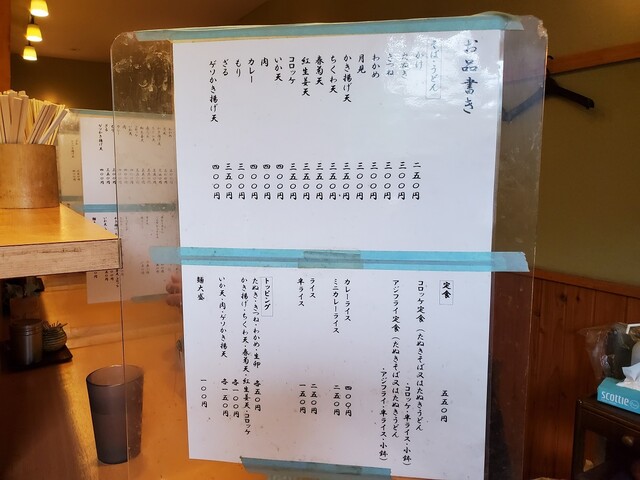 お品書き
そば・うどん
かけ 二五〇円
たぬき 三〇〇円
きつね 三〇〇円
わかめ 三〇〇円
月見 三〇〇円
かき揚げ天 三五〇円
ちくわ天 三五〇円
春菊天 三五〇円
紅生姜天 三五〇円
コロッケ 三五〇円
いか天 四〇〇円
肉 四〇〇円
カレー 四〇〇円
もり 三〇〇円
ざる 三五〇円
ゲソかき揚げ天 四〇〇円
定食 五五〇円
コロッケ定食(たぬきそば又はたぬきうどん
・コロッケ・半ライス・小鉢)
アジフライ定食(たぬきそば又はたぬきうどん
・アジフライ・半ライス・小鉢)
カレーライス 四〇〇円
ミニカレーライス 二五〇円
ライス 二五〇円
半ライス 一五〇円
トッピング
たぬき・きつね・わかめ・生卵 各五〇円
かき揚げ・ちくわ天・春菊天・紅生姜天・コロッケ 各一〇〇円
いか天・肉・ゲソかき揚げ天 各一五〇円
麺大盛 一〇〇円
scottie